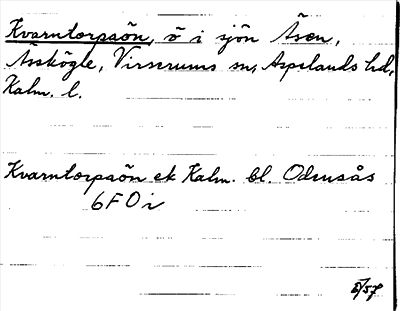 Kvarntorpaön, ö i sjön Åsen,
Åsskögle, Virserums sn, Aspelands hd,
Kalm. l.
Kvarntorpaön ek Kalm. bl. Odensås
6F 0 i